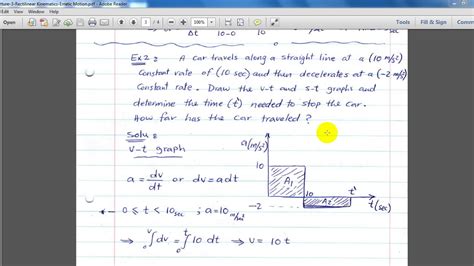 cture-3-Rectilinear Kinematics-Erratic Motion.pdf - Adobe Reader
Tools Fill & Sign Comment
Δt 10-0 10
Ex2: A car travels along a straight line at a (10 m/s²)
Constant rate of (10 sec) and then decelerates at a (-2 m/s²)
Constant rate. Draw the v-t and s-t graphs and
determine the time (t') needed to stop the car.
How far has the car traveled?
Solu:
v-t graph
a(m/s²)
10
A₁
a = dv/dt or dv = adt
10 t'
-2 A₂
t(sec)
0 ≤ t < 10 sec ; a = 10 m/s²
⇒ ∫₀ᵛ dv = ∫₀ᵗ 10 dt ⇒ v = 10 t